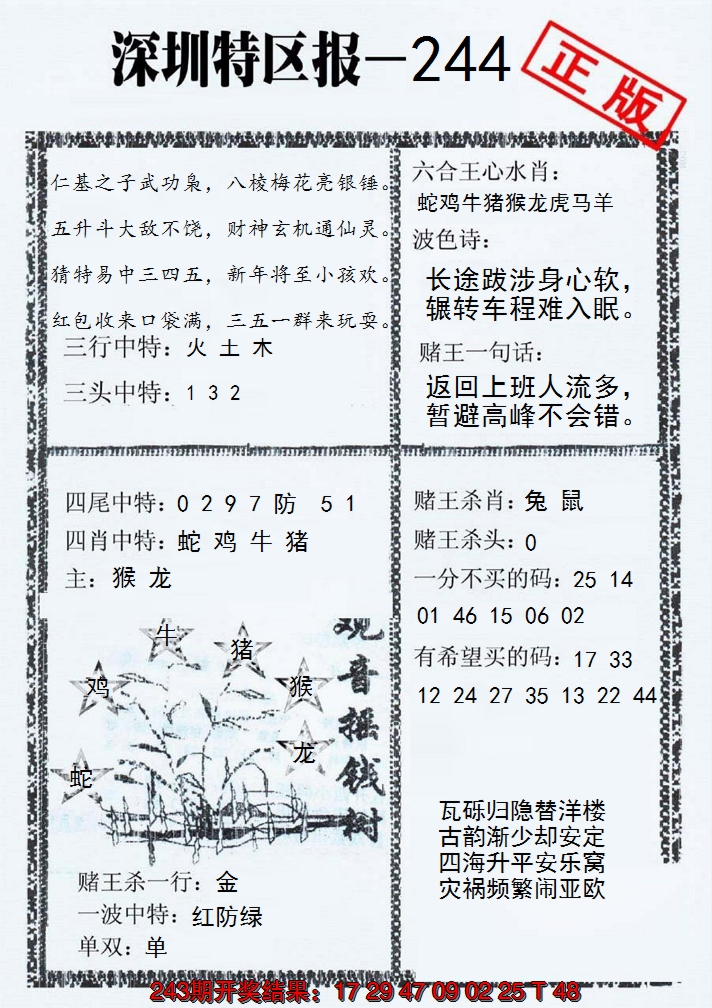 深圳特区报—244
正版
仁基之子武功枭，八棱梅花亮银锤。
五升斗大敌不饶，财神玄机通仙灵。
猜特易中三四五，新年将至小孩欢。
红包收来口袋满，三五一群来玩耍。
三行中特：火 土 木
三头中特：1 3 2
六合王心水肖：
蛇鸡牛猪猴龙虎马羊
波色诗：
长途跋涉身心软，
辗转车程难入眠。
赌王一句话：
返回上班人流多，
暂避高峰不会错。
四尾中特：0 2 9 7 防 5 1
四肖中特：蛇 鸡 牛 猪
主：猴 龙
牛
猪
鸡
猴
龙
蛇
观音摇钱树
赌王杀一行：金
一波中特：红防绿
单双：单
赌王杀肖：兔 鼠
赌王杀头：0
一分不买的码：25 14
01 46 15 06 02
有希望买的码：17 33
12 24 27 35 13 22 44
瓦砾归隐替洋楼
古韵渐少却安定
四海升平安乐窝
灾祸频繁闹亚欧
243期开奖结果：17 29 47 09 02 25 T 48